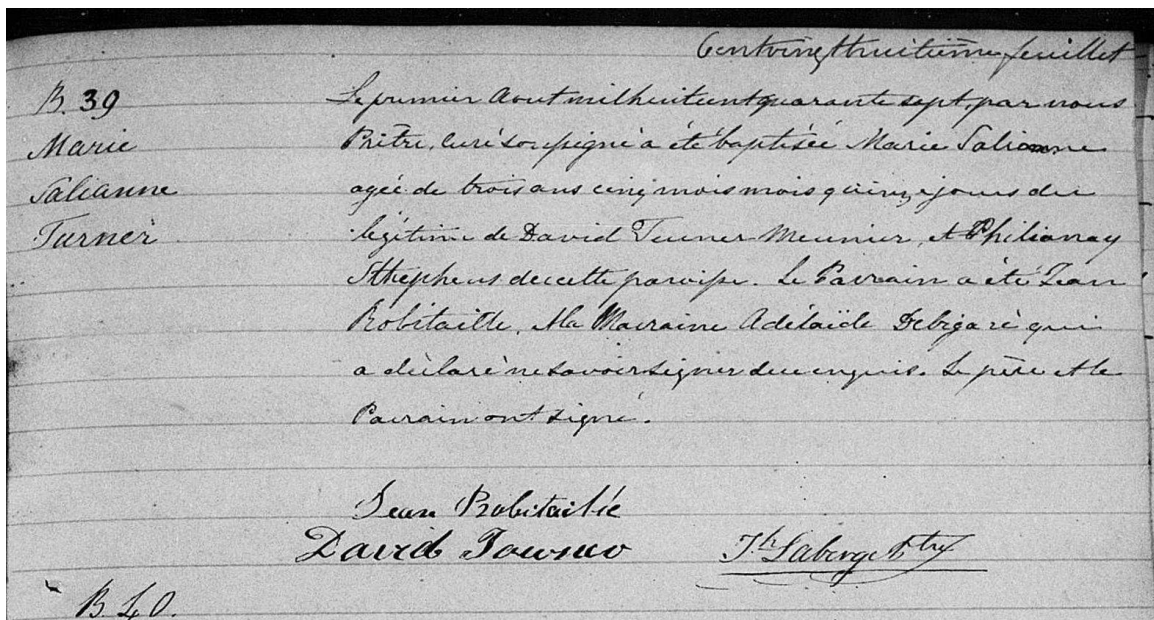 Centvingthuitième feuillet
B. 39
Marie
Salianne
Turner
Le premier Aout mil huit cent quarante sept, par nous
Prêtre, curé soussigné a été baptisée Marie Salianne
agée de trois ans cinq mois mois quinze jours du
légitime de David Turner Meunier, et Philianay
Sthephens de cette paroisse. Le Parrain a été Jean
Robitaille, et la Marraine Adélaïde Debigaré qui
a déclaré ne savoir signer de ce enquis. Le père et le
Parrain ont signé.
Jean Robitaille
David Towner
Jh Laberge Ptre
B. 40.